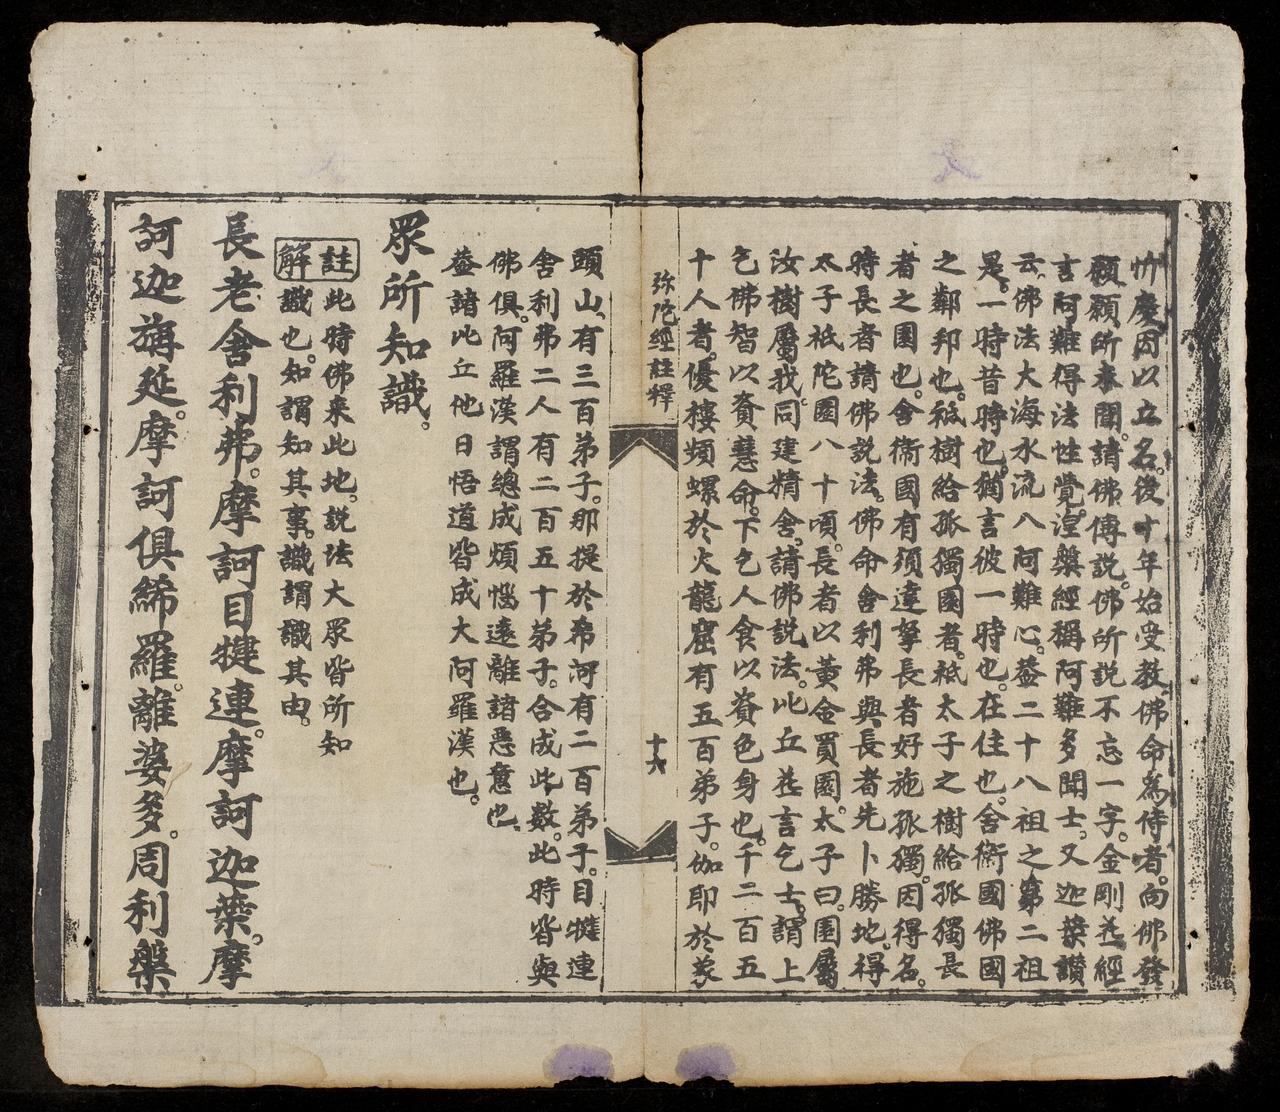 忻慶因以立名。後十年始受教。佛命為侍者。向佛發
願。願所未聞。請佛傳說。佛所說不忘一字。金剛等經
言。阿難得法性覺。涅槃經稱阿難多聞士。又迦葉讚
云。佛法大海水流入阿難心。葢二十八祖之第二祖
是。一時昔時也。猶言彼一時也。在住也。舍衛國佛國
之鄰邦也。祗樹給孤獨園者。祗太子之樹給孤獨長
者之園也。舍衛國有須達拏長者好施孤獨。因得名。
時長者請佛說法。佛命舍利弗與長者先卜勝地。得
太子祗陀園八十頃。長者以黄金買園。太子曰。園屬
汝樹屬我。同建精舍。請佛說法。比丘華言乞士。謂上
乞佛智以資慧命。下乞人食以資色身也。千二百五
十人者。優樓頻螺於火龍窟有五百弟子。伽耶於象
弥陀經註釋
十六
頭山。有三百弟子。那提於希河有二百弟子。目犍連
舍利弗二人有二百五十弟子。合成此數。此時皆與
佛俱。阿羅漢謂總成煩惱遠離諸惡意也。
葢諸比丘他日悟道皆成大阿羅漢也。
眾所知識。
註解
此時佛來此地。說法大眾皆所知
識也。知謂知其事。識謂識其由。
長老舍利弗。摩訶目犍連。摩訶迦葉。摩
訶迦旃延。摩訶俱絺羅。離婆多。周利槃